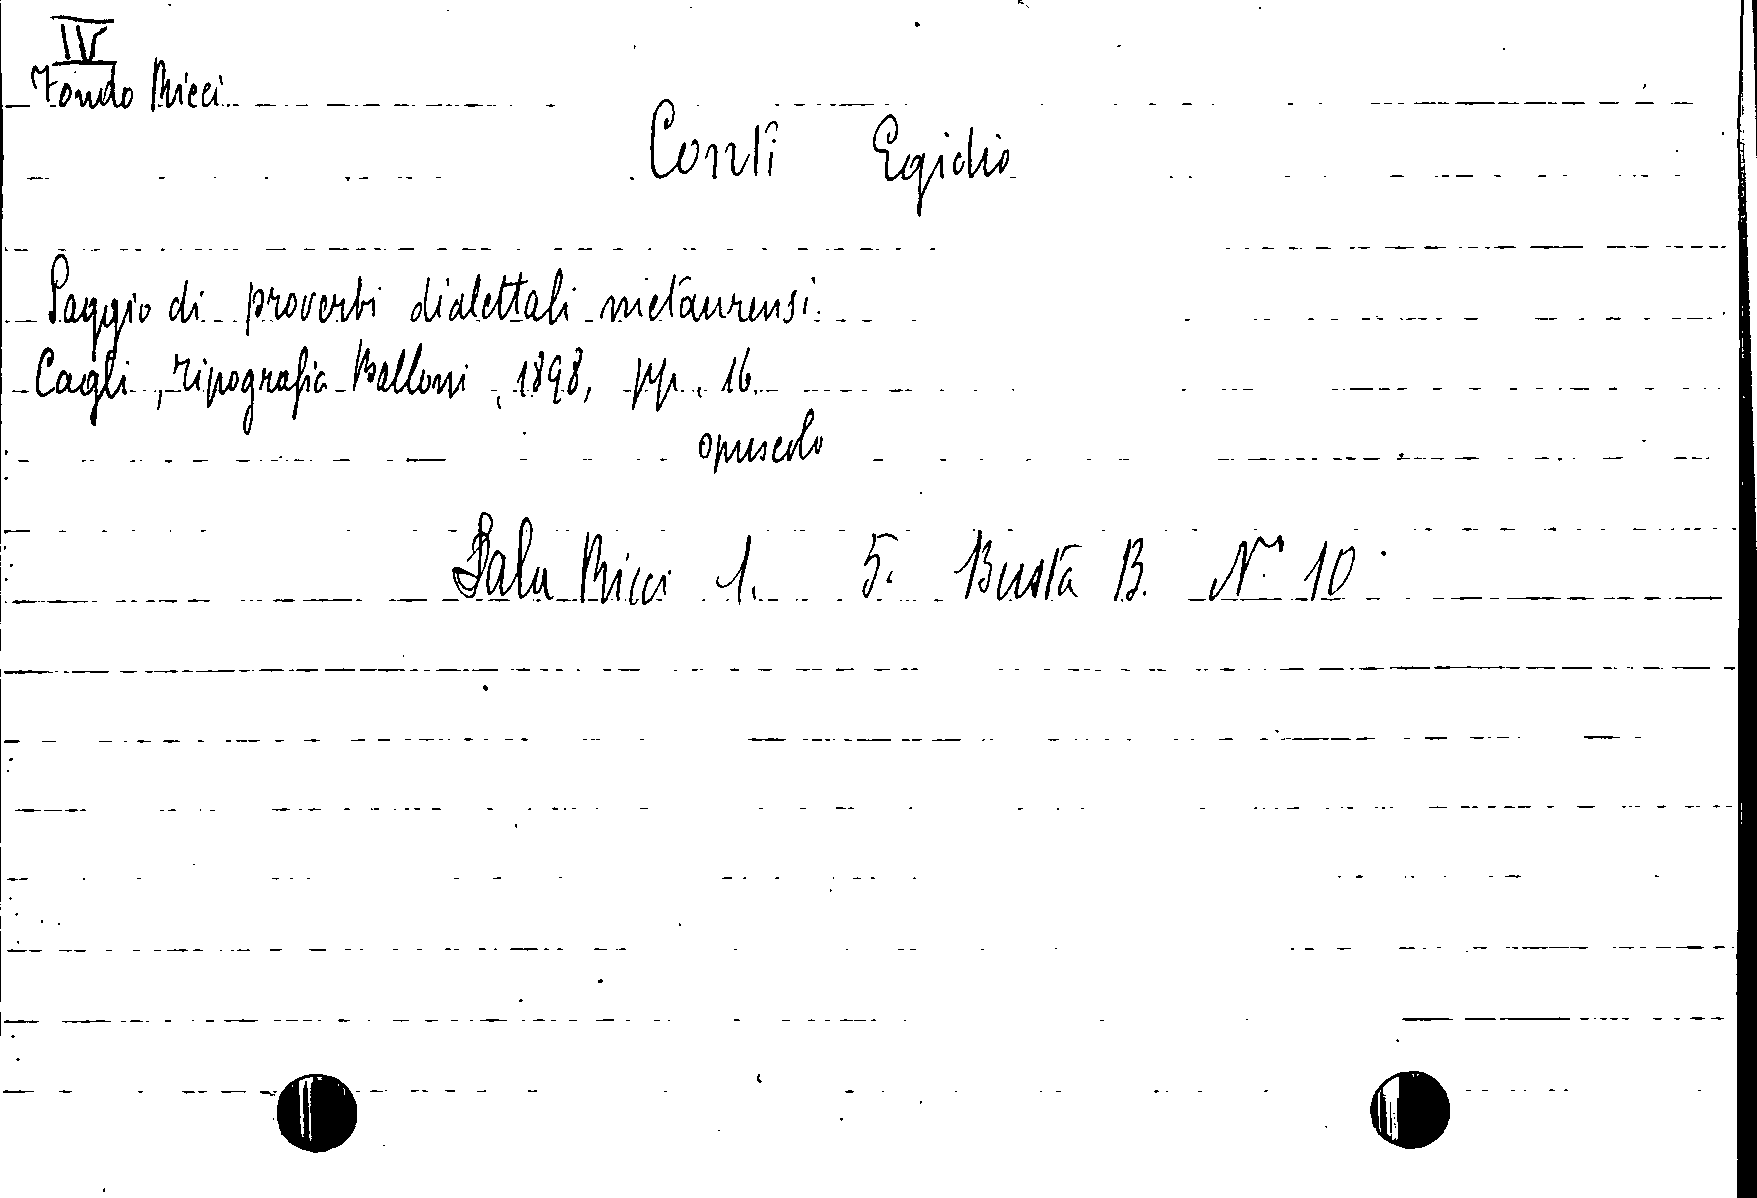 IV
Fondo Ricci
Conti Egidio
Saggio di proverbi dialettali metaurensi.
Cagli, Tipografia Balloni, 1898, pp. 16.
opuscolo
Sala Ricci 1. 5. Busta B. N.° 10